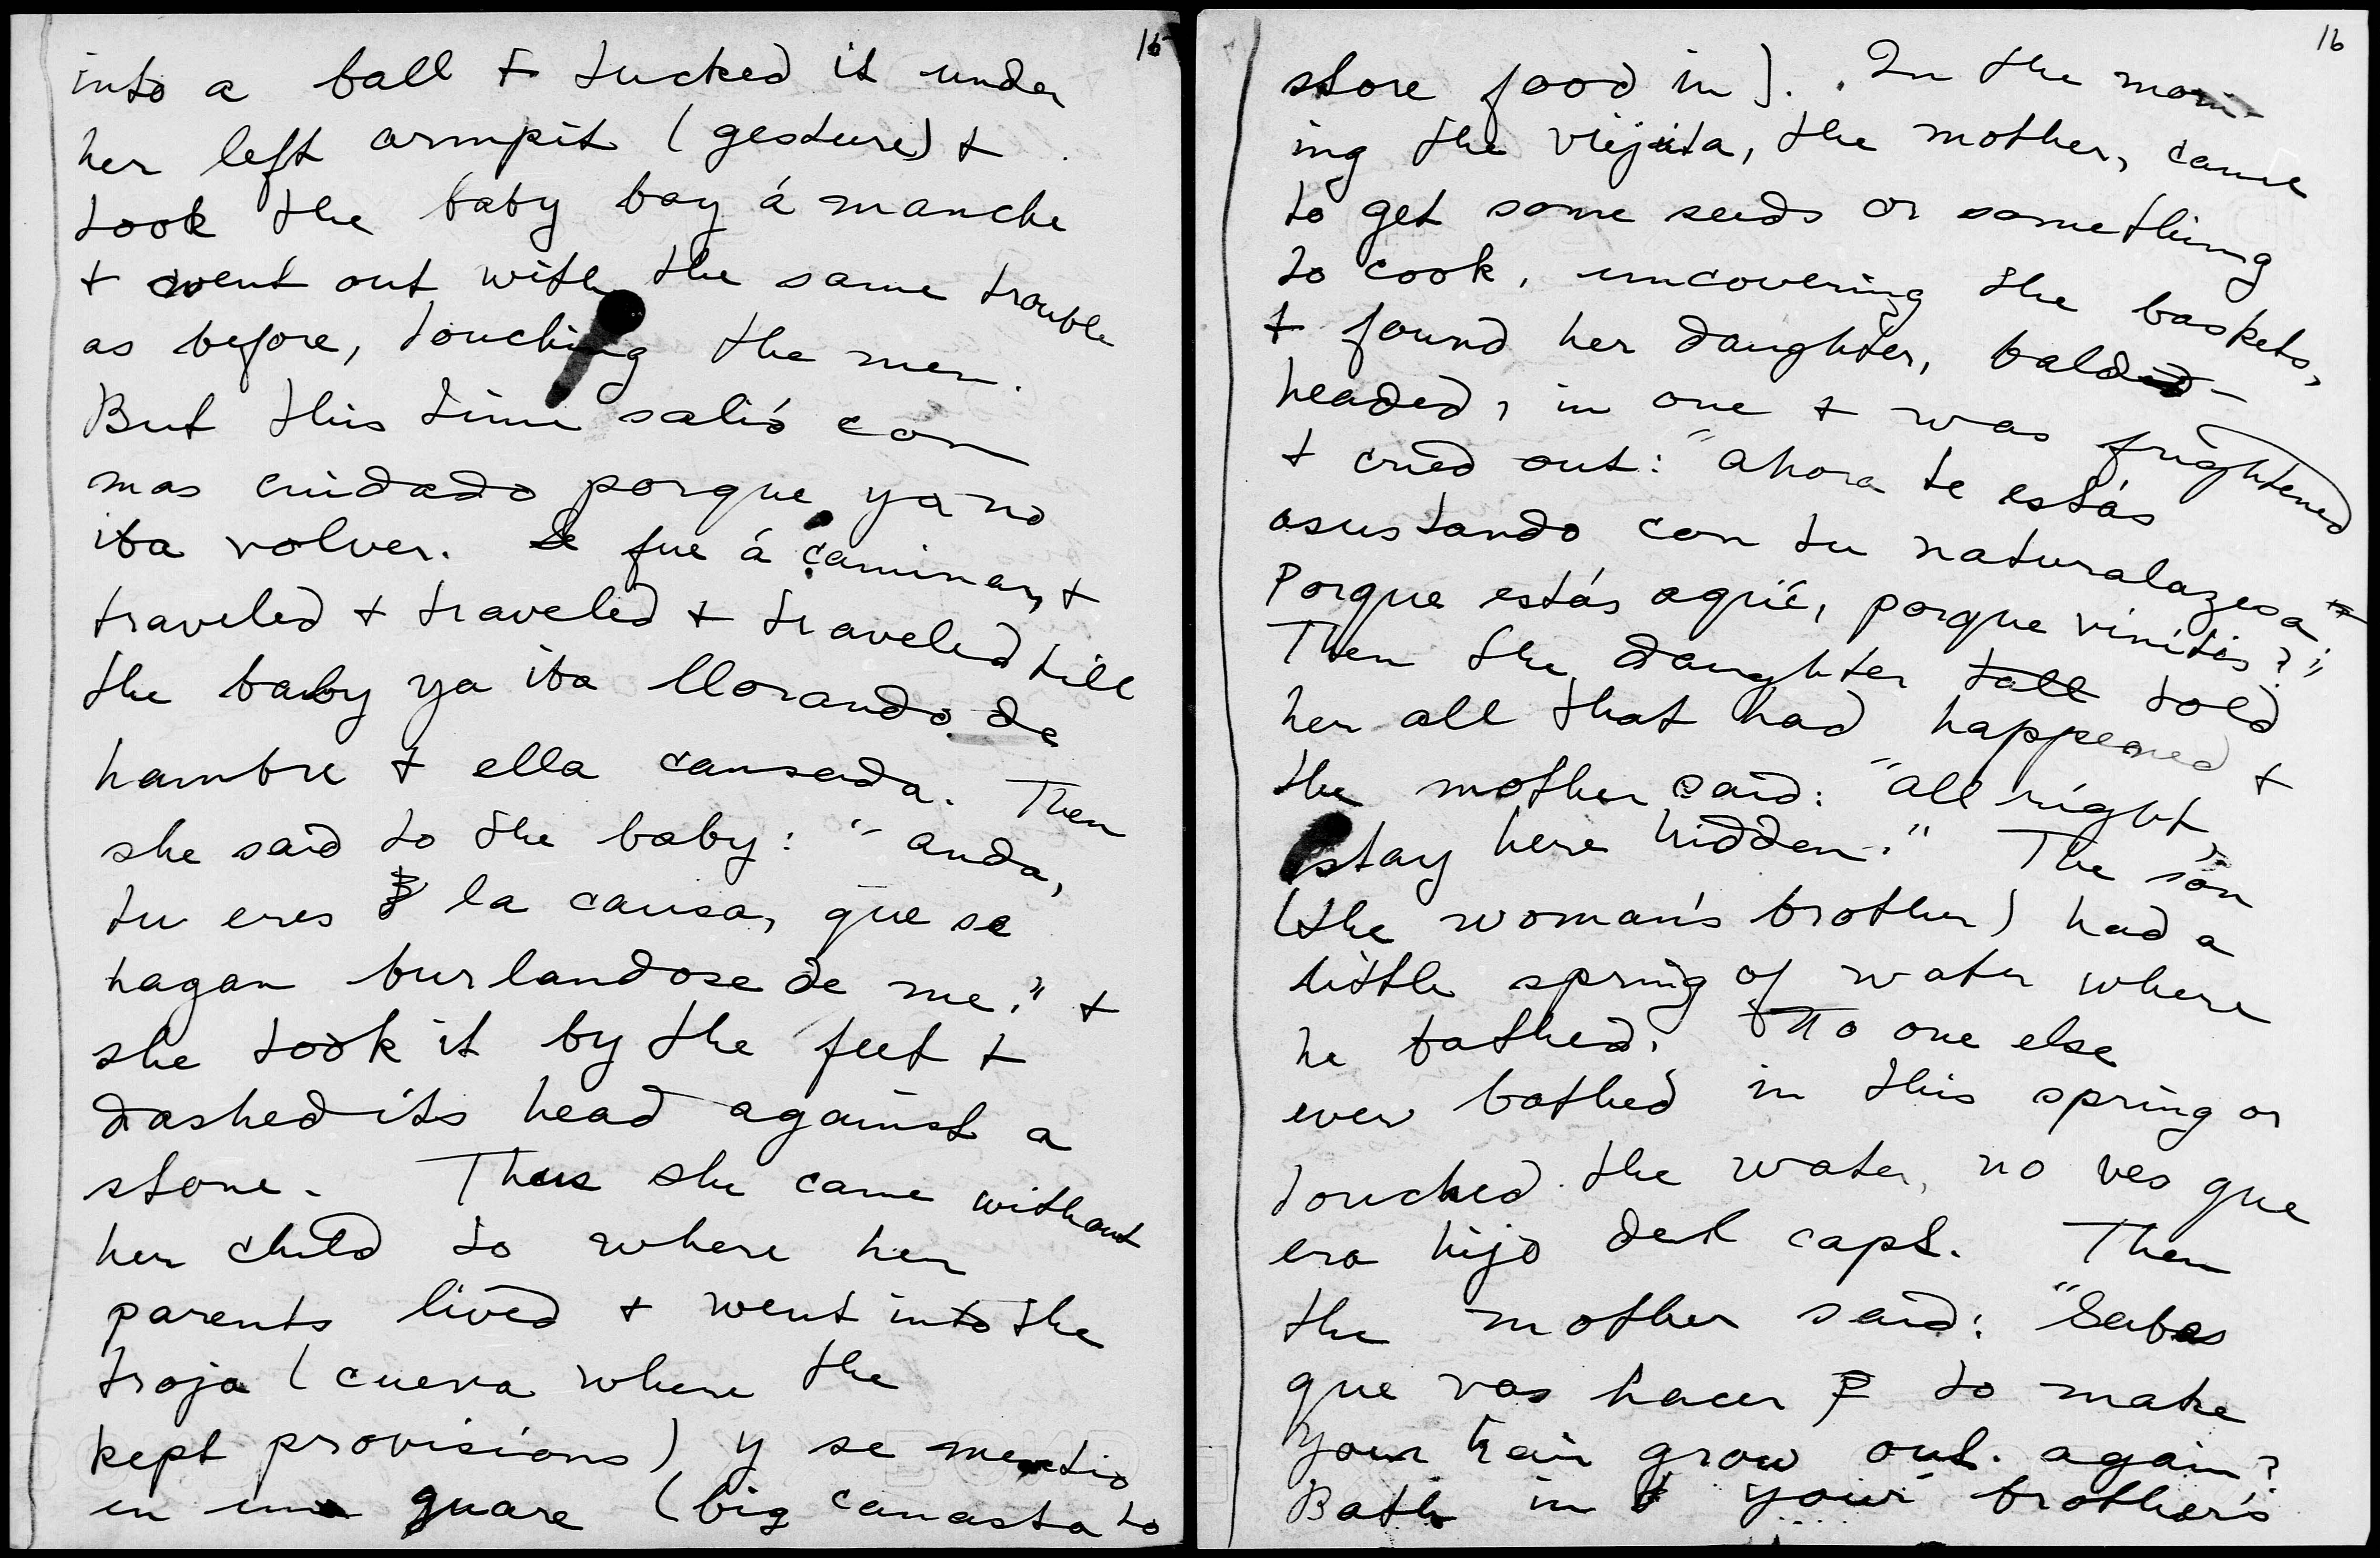 15
into a ball + tucked it under
her left armpit (gesture) +
took the baby boy á manche
+ went out with the same trouble
as before, touching the men.
But this time salió con
mas cuidado porque ya no
iba volver. Se fue á caminar, +
traveled + traveled + traveled till
the baby ya iba llorando de
hambre + ella cansada. Then
she said to the baby: "anda,
tu eres la causa, que se
hagan burlandose de me." +
she took it by the feet +
dashed its head against a
stone. Thus she came without
her child to where her
parents lived + went into the
troja (cueva where the
kept provisions) y se mentio
en una guare (big canasta to
16
store food in). In the morn-
ing the viejita, the mother, came
to get some seeds or something
to cook, uncovering the baskets,
+ found her daughter, bald-
headed, in one + was frightened
+ cried out: "ahora te estás
asustando con tu naturalazesa
Porque estás aquíe, porque vinites?"
Then the daughter tall told
her all that had happened +
the mother said: "all right,
stay here hidden." The son
(the woman's brother) had a
little spring of water where
he bathed. No one else
ever bathed in this spring or
touched the water, no ves que
era hijo del capt. Then
the mother said: "Sabes
que vas hacer to make
your hair grow out again?
Bath in your brother's